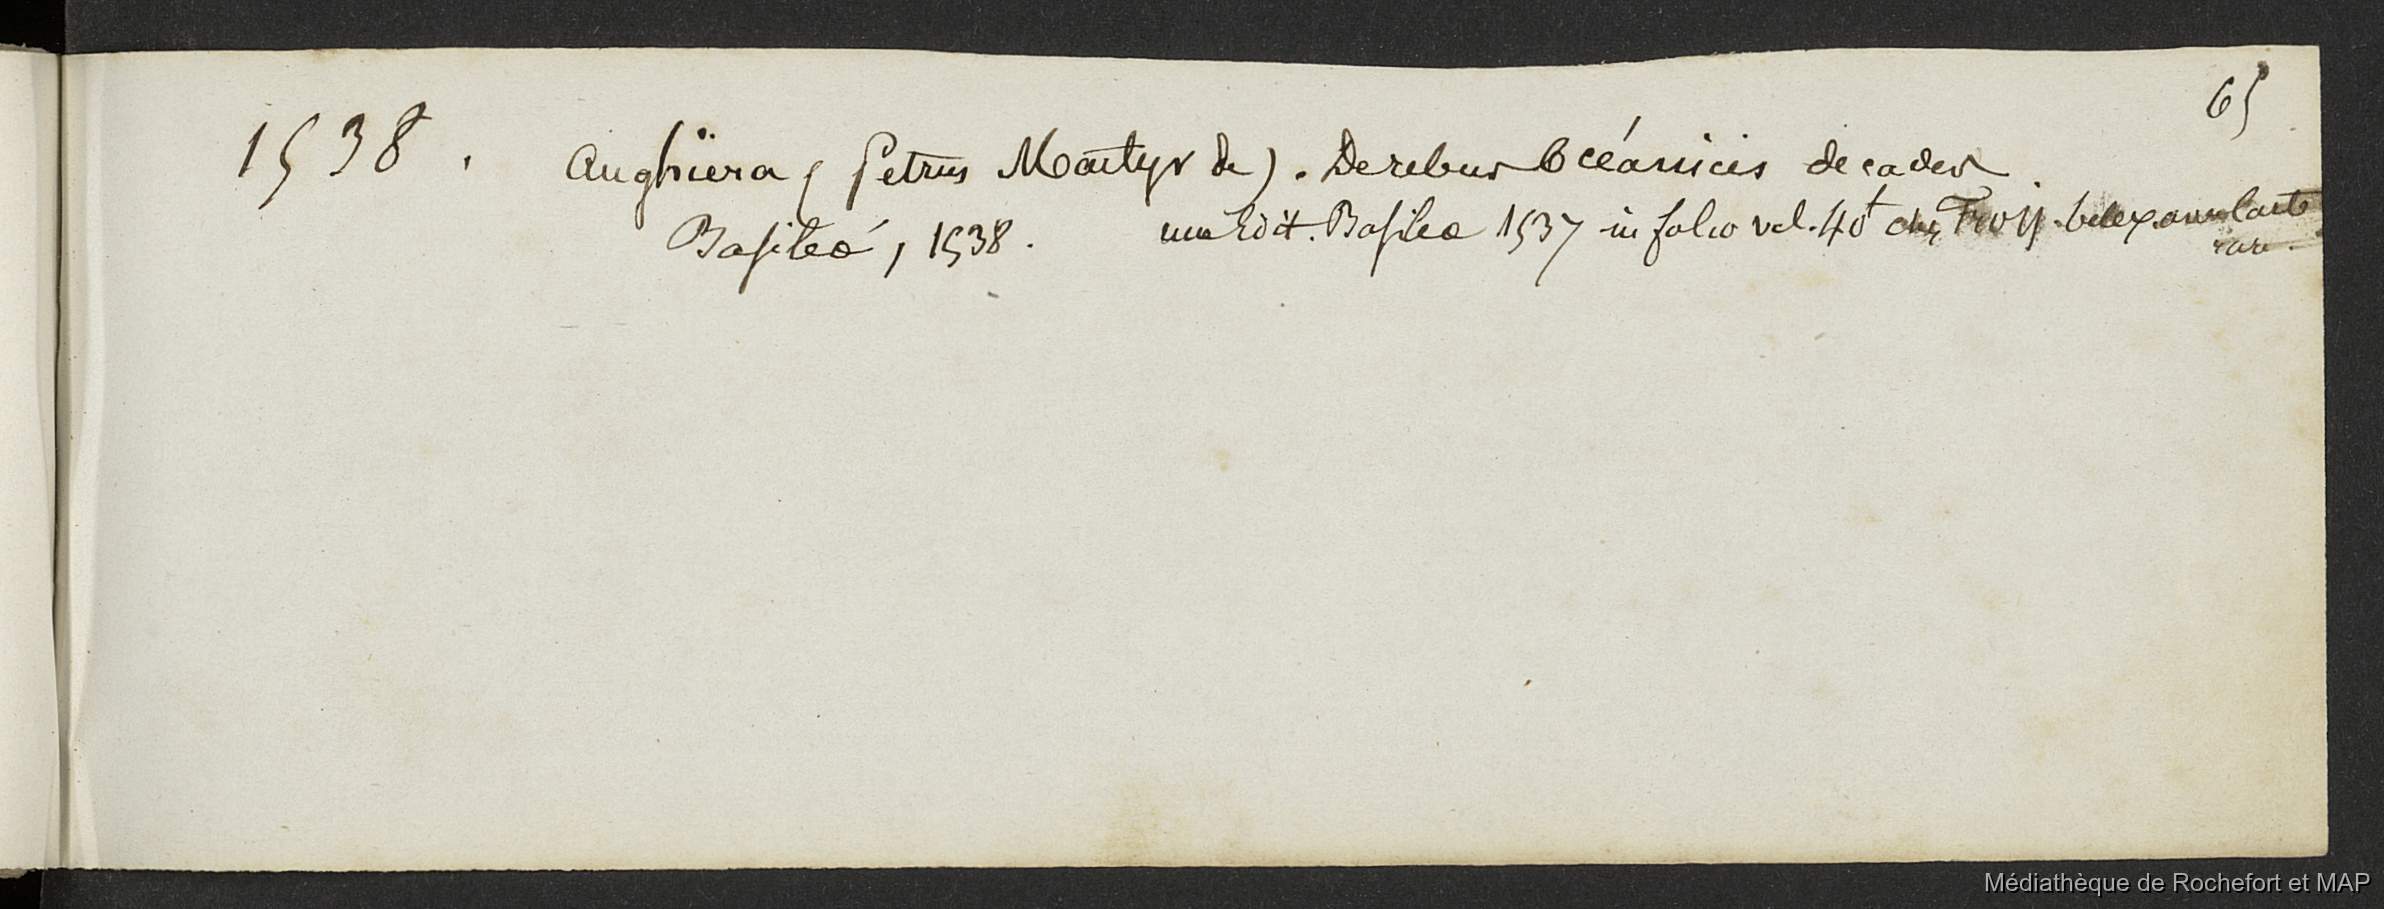 65
1538. Anghïera (Petrus Martyr de). De rebus Océanicis decades.
Basileé, 1538. une Edit. Basilea 1537 in folio vel. 40 chez Tross. bel ex. avec la carte
rare.
Médiathèque de Rochefort et MAP